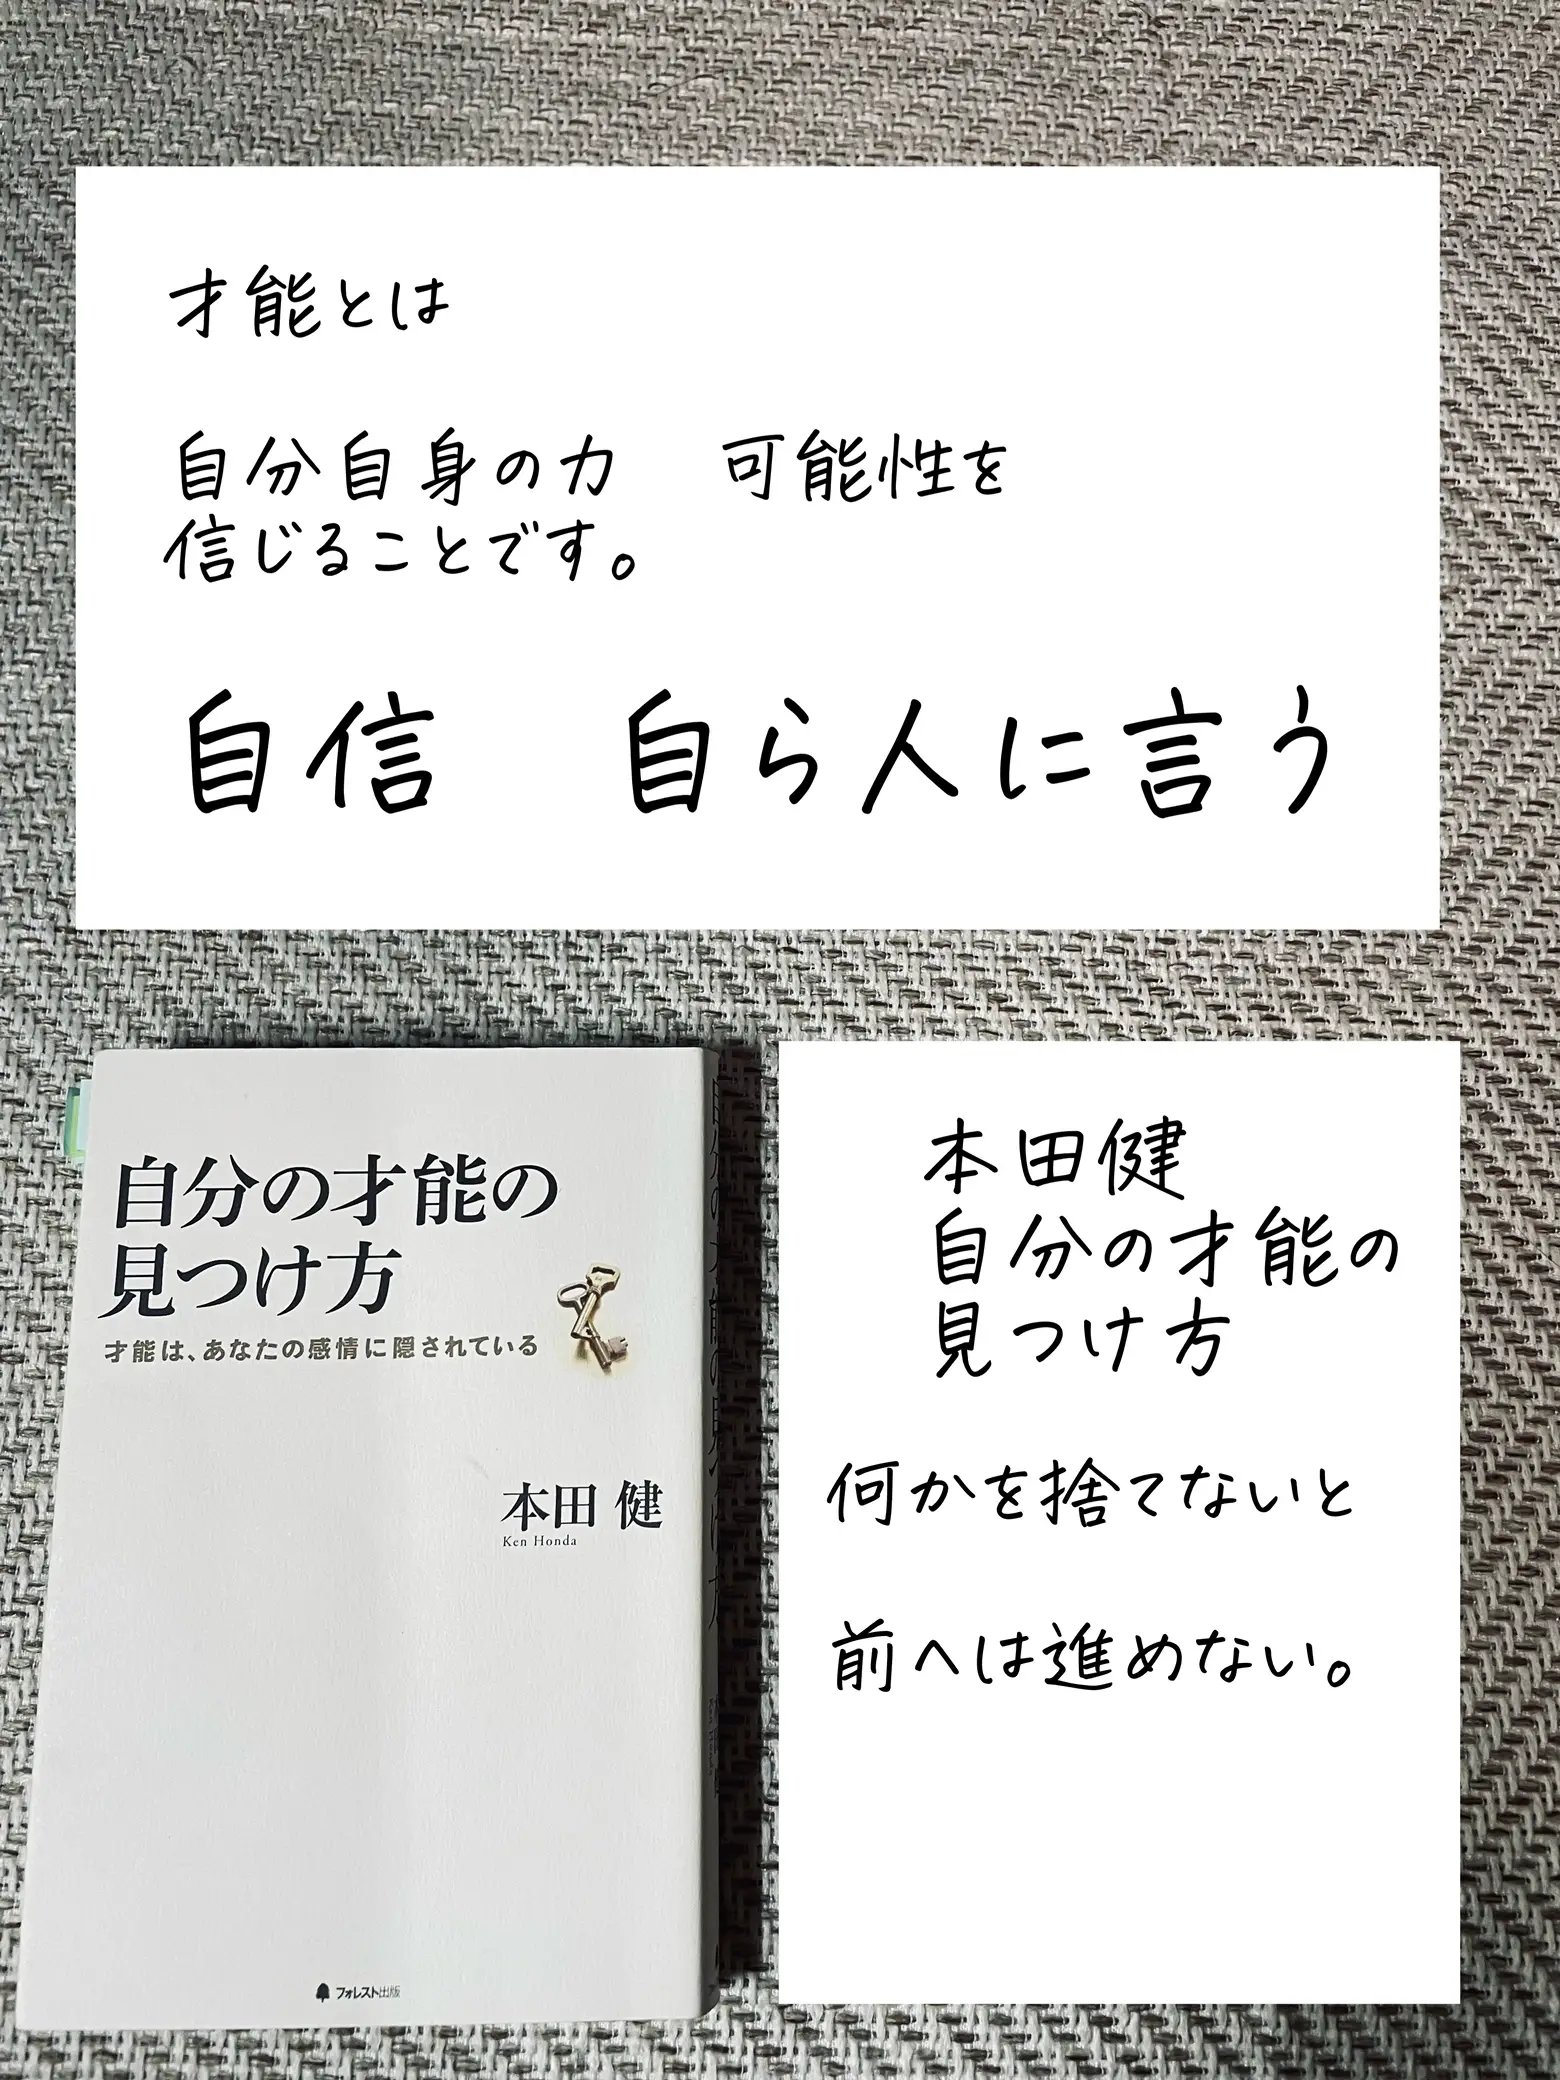 才能とは
自分自身の力　可能性を
信じることです。
自信　自ら人に言う
自分の才能の
見つけ方
才能は、あなたの感情に隠されている
本田 健
Ken Honda
フォレスト出版
本田健
自分の才能の
見つけ方
何かを捨てないと
前へは進めない。